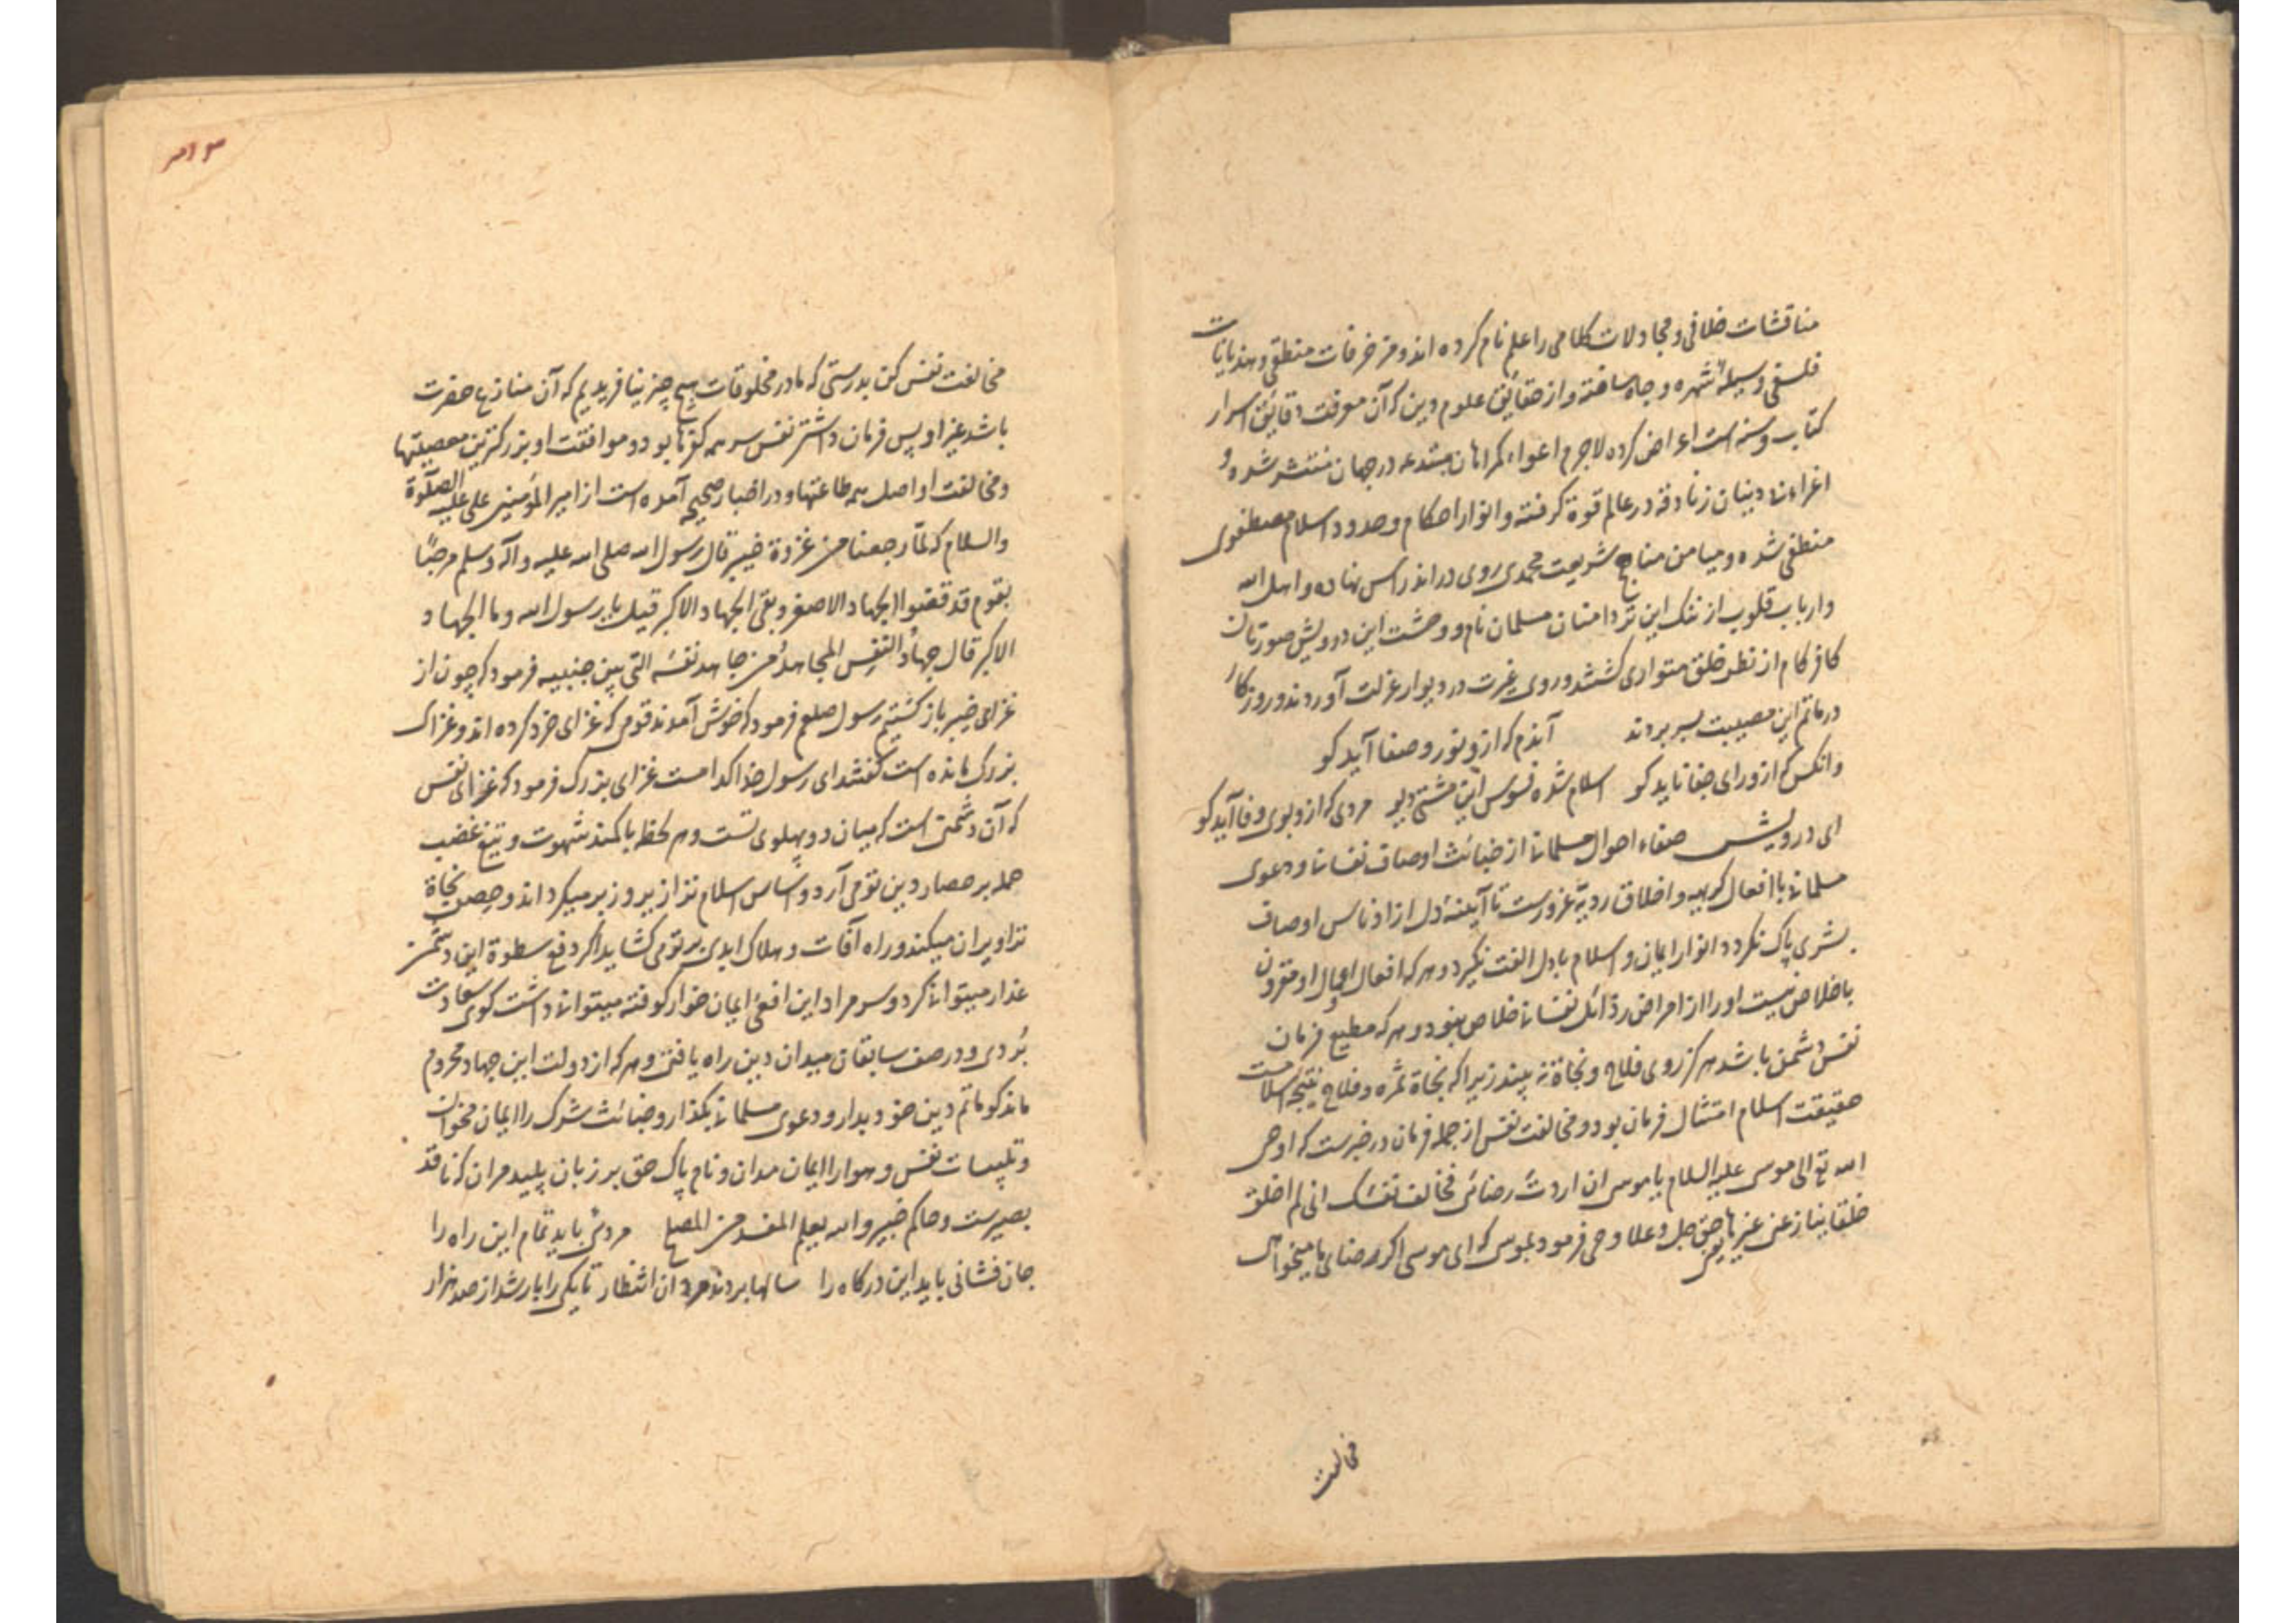 مناقشات خلافی و مجادلات کلامی را علم نام کرده اند و مزخرفات منطقی و هذیانات
فلسفی وسیلهٔ شهره و جاه ساخته و از حقایق علوم دین که آن معرفت دقایق اسرار
کتاب و سنه است اعراض کرده لاجرم اعواء کمراهان مبتدعه در جهان منتشر شده و
اغراء بیدینان زنادقه در عالم قوة کرفته و انوار احکام و حدود اسلام مصطفوی
منطفی شده و میامن مناهج شریعت محمدی روی در اندراس نهاده و اهل الله
و ارباب قلوب از ننک این تردامنان مسلمان نام و وحشت این درویش صورتان
کافر کام از نظر خلق متواری کشتند و روی غیرت در دیوار عزلت آوردند و روزکار
در ماتم این مصیبت بسر بردند آندم که ازو نور و صفا آید کو
وانکس که ازو رای جفا ناید کو اسلام شده فسوس این مشتی دیو مردی که ازو بوی وفا آید کو
ای درویش صفاء احوال مسلمانی از خبائث اوصاف نفسانی و دعوی
مسلمانی با افعال کریهه و اخلاق ردیه غرورست تا آیینهٔ دل از ادناس اوصاف
بشری پاک نکردد انوار ایمان و اسلام با دل الفت نکیرد و هر که افعال و اعمال او مقرون
باخلاص نیست او را از امراض رذائل نفسانی خلاص نبود و هر که مطیع فرمان
نفس دشمن باشد هرکز روی فلاح و نجاة نه بیند زیرا که نجاة ثمره و فلاح نتیجه اسلامست
حقیقت اسلام امتثال فرمان بود و مخالفت نفس از جمله فرمان در خبرست که اوحی
الله تع الی موسی علیه السلام یا موسی ان اردت رضائی فخالف نفسک انی لم اخلق
خلقا ینازعنی غیرها یعنی حق جل و علا وحی فرمود بموسی که ای موسی اکر رضای ما میخواهی
مخالفت
۳۱۳
مخالفت نفس کن بدرستی که ما در مخلوقات هیچ چیز نیافریدیم که آن منازع حضرت
باشد غیر او پس فرمان داشتن نفس سر همه کفرها بود و موافقت او بزرکترین معصیتها
و مخالفت او اصل همه طاعتها و در اخبار صحیحه آمده است از امیر المؤمنین علی علیه الصلوة
والسلام که لمّا رجعنا من غزوة خیبر قال رسول الله صلی الله علیه و آله و سلم مرحبًا
بقوم قد قضوا الجهاد الاصغر و بقی الجهاد الاکبر قیل یا رسول الله و ما الجهاد
الاکبر قال جهادُ النفس المجاهدُ من جاهد نفسَه التی بین جنبیه فرمود که چون از
غزای خیبر باز کشتیم رسول صلعم فرمود که خوش آمدند قومی که غزای خرد کرده اند و غزاء
بزرک مانده است کفتند ای رسول خدا کدامست غزای بزرک فرمود که غزای نفس
که آن دشمنی است که میان دو پهلوی تست و هر لحظه با کمند شهوت و تیغ غضب
حمله بر حصار دین تو می آرد و اساس اسلام ترا زیر و زبر میکرداند و حصن نجاة
ترا ویران میکند و راه آفات و هلاک ابدی بر تو می کشاید اکر دفع سطوة این دشمن
غدار میتوانی کرد و سر مراد این افعی ایمان خوار کوفته میتوانی داشت کوی سعادت
بُردی و در صف سابقان میدان دین راه یافتی و هر که از دولت این جهاد محروم
ماند کو ماتم دین خود بدار و دعوی مسلمانی بکذار و خبائث شرک را ایمان مخوان
و تلبیسات نفس و هوا را ایمان مدان و نام پاک حق بر زبان پلید مران که ناقد
بصیرست و حاکم خبیر والله یعلم المفسد من المصلح مردئی باید تمام این راه را
جان فشانی باید این درکاه را سالها بردند مردان انتظار تا یکی را بار شد از صد هزار